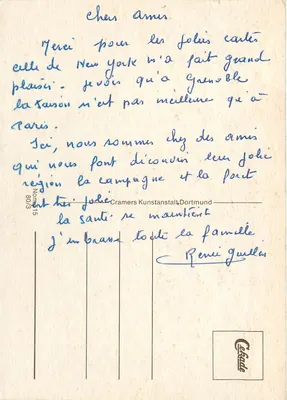 chers amis
Merci pour les jolies cartes
celle de New York m'a fait grand
plaisir - je vois qu'à Grenoble
la saison n'est pas meilleure qu'à
Paris.
Ici, nous sommes chez des amis
qui nous font découvrir leur jolie
région la campagne et la forêt
est très jolie
la santé se maintient
j'embrasse toute la famille
Renée
Cramers Kunstanstalt, Dortmund
Cekade